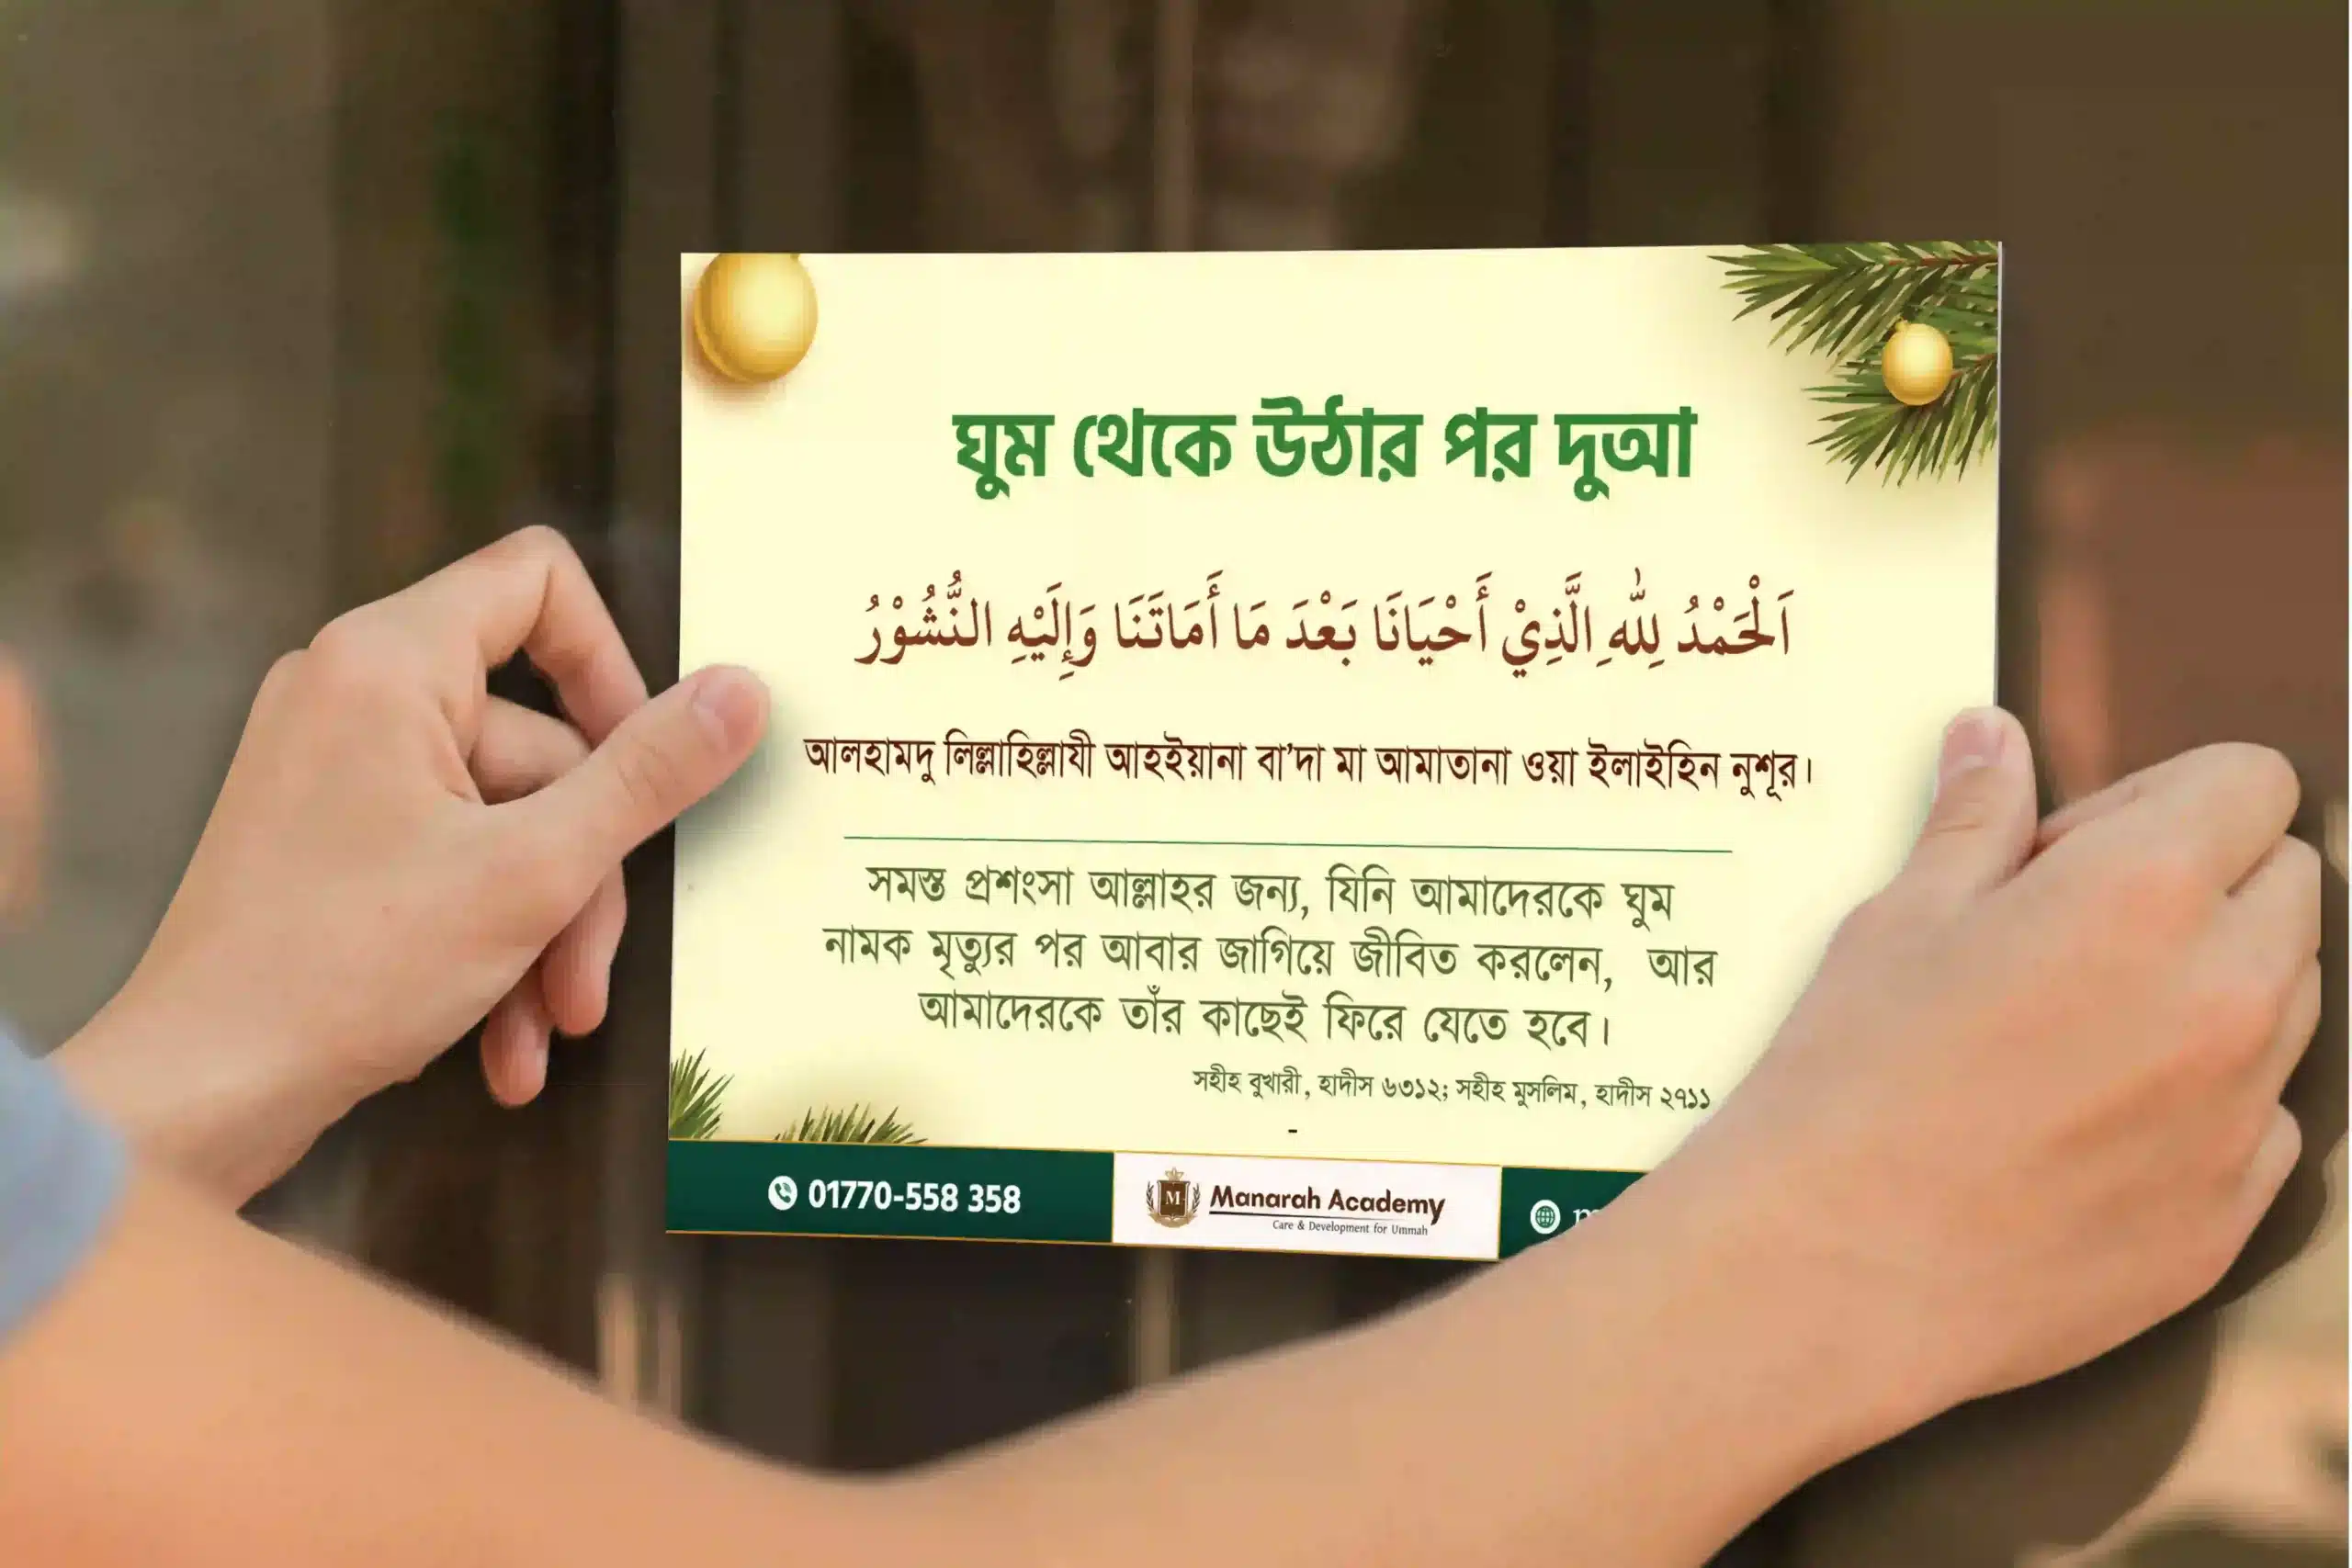 ঘুম থেকে উঠার পর দুআ
اَلْحَمْدُ لِلّٰهِ الَّذِيْ أَحْيَانَا بَعْدَ مَا أَمَاتَنَا وَإِلَيْهِ النُّشُوْرُ
আলহামদু লিল্লাহিল্লাযী আহইয়ানা বা’দা মা আমাতানা ওয়া ইলাইহিন নুশূর।
সমস্ত প্রশংসা আল্লাহর জন্য, যিনি আমাদেরকে ঘুম
নামক মৃত্যুর পর আবার জাগিয়ে জীবিত করলেন, আর
আমাদেরকে তাঁর কাছেই ফিরে যেতে হবে।
সহীহ বুখারী, হাদীস ৬৩১২; সহীহ মুসলিম, হাদীস ২৭১১
-
01770-558 358
M
Manarah Academy
Care & Development for Ummah